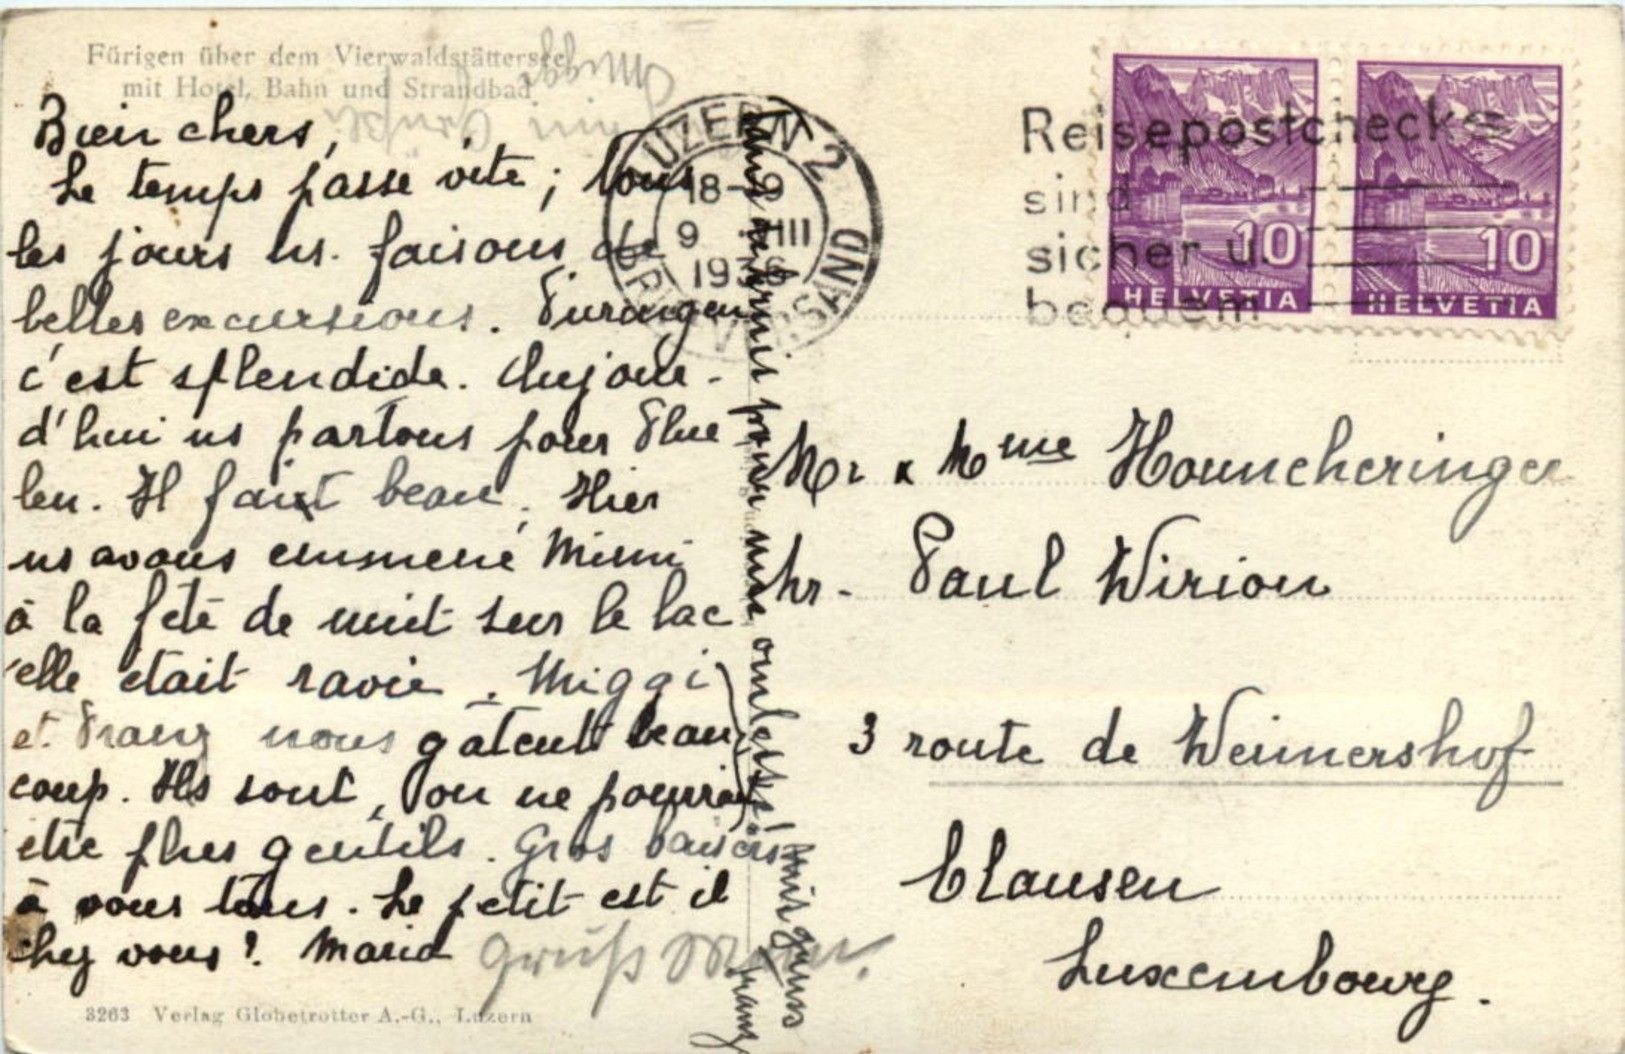 Fürigen über dem Vierwaldstättersee
mit Hotel, Bahn und Strandbad
Bien chers,
Le temps passe vite ; tous
les jours ns. faisons de
belles excursions. Furigen
c'est splendide. Aujour-
d'hui ns partons pour Flue
len. Il fait beau. Hier
ns avons emmené Mimi
à la fête de nuit sur le lac
elle était ravie. Miggi
et Franz nous gâtent beau
coup. Ils sont, on ne pourrait
être plus gentils. Gros baisers
à vous tous. Le petit est il
chez vous? Maria
Gruß
Franz
3263 Verlag Globetrotter A.-G., Luzern
Miggi
LUZERN 2
18-9
9 VIII
1936
BRIEFVERSAND
Reisepostchecks
sind
sicher u.
bequem
10
HELVETIA
10
HELVETIA
Mr & Mme Houncheringer
hr. Paul Wirion
3 route de Weimershof
Clausen
Luxembourg.